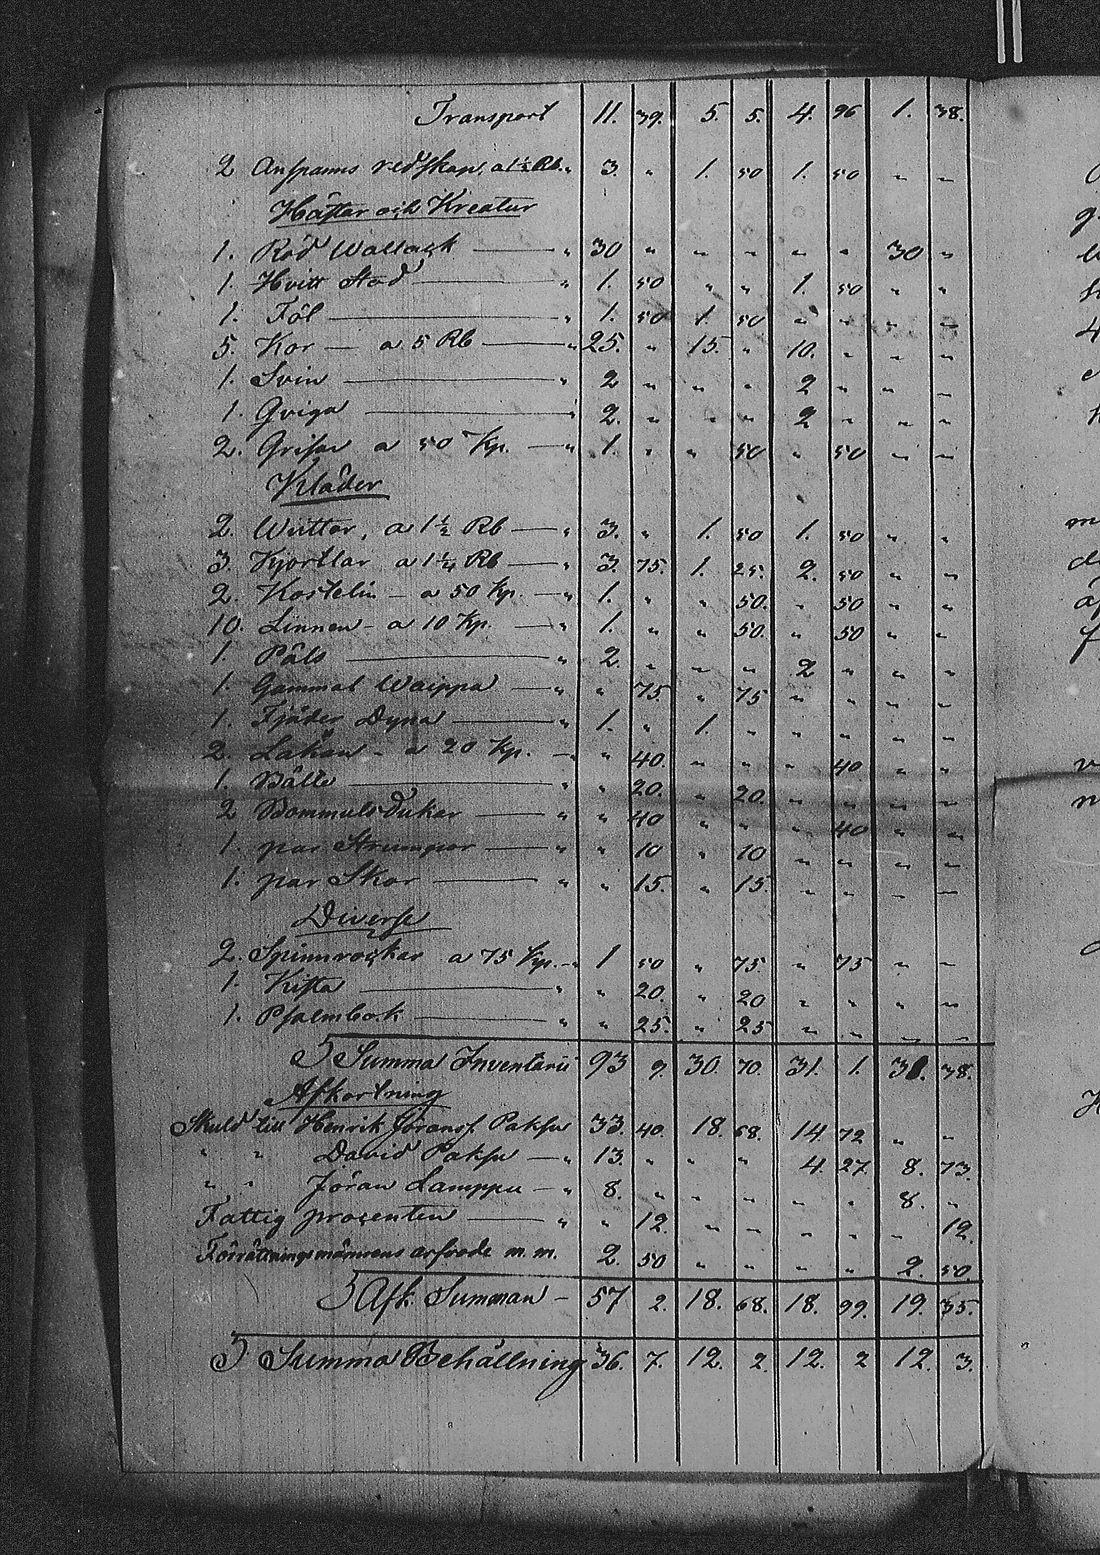 Transport 11. 39. 5. 5. 4. 96 1. 38.
2 Anspanns redskap, a 1½ Rb. „ 3. „ 1. 50 1. 50 „ „
Hästar och Kreatur
1. Röd Wallack — „ 30 „ „ „ „ „ 30 „
1. Hvitt Stod — „ 1. 50 „ „ 1. 50 „ „
1. Föl — „ 1. 50 1. 50 „ „ „ „
5. Kor — a 5 Rb — „ 25. „ 15. „ 10. „ „ „
1. Svin — „ 2 „ „ „ 2 „ „ „
1. Qviga — „ 2. „ „ „ 2 „ „ „
2. Grisar a 50 Kp. — „ 1. „ „ 50 „ 50 „ „
Kläder
2. Wuttar, a 1½ Rb — „ 3. „ 1. 50 1. 50 „ „
3. Kjorttar a 1¼ Rb — „ 3. 75. 1. 25. 2. 50 „ „
2. Kostelin — a 50 Kp. — „ 1. „ „ 50. „ 50 „ „
10. Linnen — a 10 Kp. — „ 1. „ „ 50 „ 50 „ „
1. Päls — „ 2. „ „ „ 2 „ „ „
1. Gammal Waippa — „ „ 75 „ 75 „ „ „ „
1. Fjäder Dyna — „ 1. „ 1. „ „ „ „ „
2. Lakan — a 20 Kp. — „ „ 40. „ „ „ 40 „ „
1. Bälte — „ „ 20. „ 20. „ „ „ „
2 Bommulsdukar — „ „ 40 „ „ „ 40 „ „
1. par Strumpor — „ „ 10 „ 10 „ „ „ „
1. par Skor — „ „ 15. „ 15. „ „ „ „
Diverse
2. Spinnrockar a 75 Kp. — „ 1 50 „ 75. „ 75 „ „
1. Kista — „ „ 20. „ 20 „ „ „ „
1. Psalmbok — „ „ 25. „ 25 „ „ „ „
Summa Inventarii 93 9. 30. 70. 31. 1. 31. 38.
Afkortning
Skuld till Henrik Göransf. Paksu 33. 40. 18. 68. 14. 72 „ „
„ „ David Paksu — „ 13. „ „ „ 4. 27. 8. 73.
„ „ Jöran Lamppu — „ 8. „ „ „ „ „ 8. „
Fattig procenten — „ „ 12. „ „ „ „ „ 12.
Förrättningsmännens arfvode m. m. 2. 50 „ „ „ „ 2. 50
Afk. Summan — 57 2. 18. 68. 18. 99. 19. 35.
Summa Behållning 36. 7. 12. 2. 12. 2 12. 3.